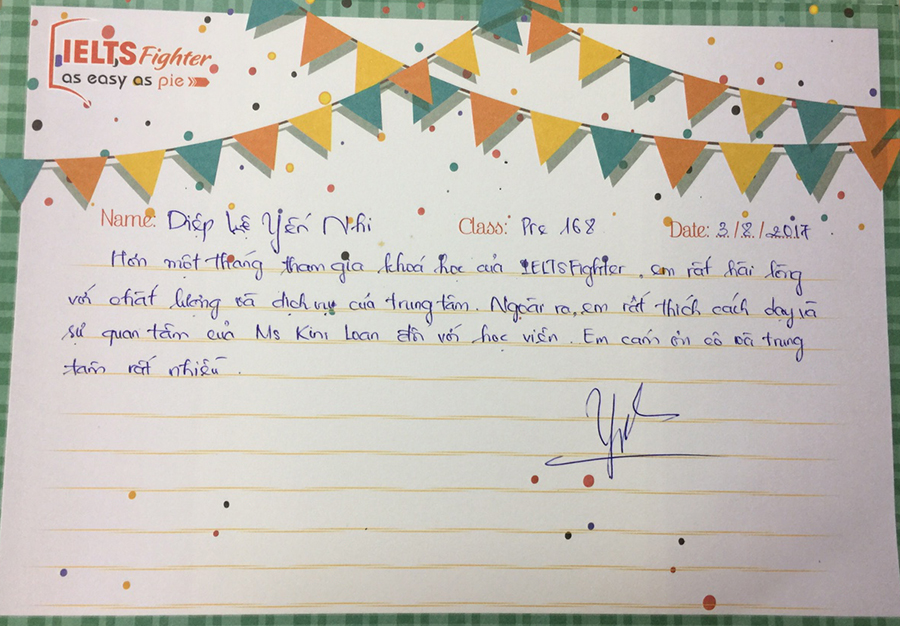 IELTS Fighter
as easy as pie
Name: Diệp Lệ Yến Nhi Class: Pre 168 Date: 3/8/2017
Hơn một tháng tham gia khoá học của IELTSFighter, em rất hài lòng
với chất lượng và dịch vụ của trung tâm. Ngoài ra, em rất thích cách dạy và
sự quan tâm của Ms Kim Loan đối với học viên. Em cám ơn cô và trung
tâm rất nhiều.